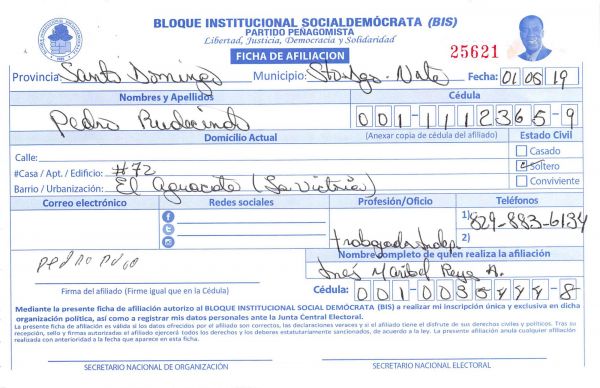 BLOQUE INSTITUCIONAL SOCIALDEMÓCRATA (BIS)
PARTIDO PEÑAGOMISTA
Libertad, Justicia, Democracia y Solidaridad
FICHA DE AFILIACION
25621
Provincia: Santo Domingo Municipio: Sto. Dgo. Norte Fecha: 01 05 19
Nombres y Apellidos Cédula
Pedro 001-1112365-9
Domicilio Actual (Anexar copia de cédula del afiliado) Estado Civil
Calle: Casado
#Casa / Apt. / Edificio: #72 Soltero
Barrio / Urbanización: El Aguacate (La Victoria) Conviviente
Correo electrónico Redes sociales Profesión/Oficio Teléfonos
1) 829-883-6134
2)
Nombre completo de quien realiza la afiliación
Inés Maribel Reyes A.
Firma del afiliado (Firme igual que en la Cédula)
Cédula:
Mediante la presente ficha de afiliación autorizo al BLOQUE INSTITUCIONAL SOCIAL DEMÓCRATA (BIS) a realizar mi inscripción única y exclusiva en dicha
organización política, así como a registrar mis datos personales ante la Junta Central Electoral.
La presente ficha de afiliación es válida si los datos ofrecidos por el afiliado son correctos, las declaraciones veraces y si el afiliado tiene el disfrute de sus derechos civiles y políticos. Tras su
recepción, sello y firmas autorizadas el afiliado ejercerá todos los derechos y los deberes estatutariamente sancionados, de acuerdo a la ley. La presente afiliación anula cualquier afiliación
realizada con anterioridad a la fecha que aparece en esta ficha.
SECRETARIO NACIONAL DE ORGANIZACIÓN SECRETARIO NACIONAL ELECTORAL